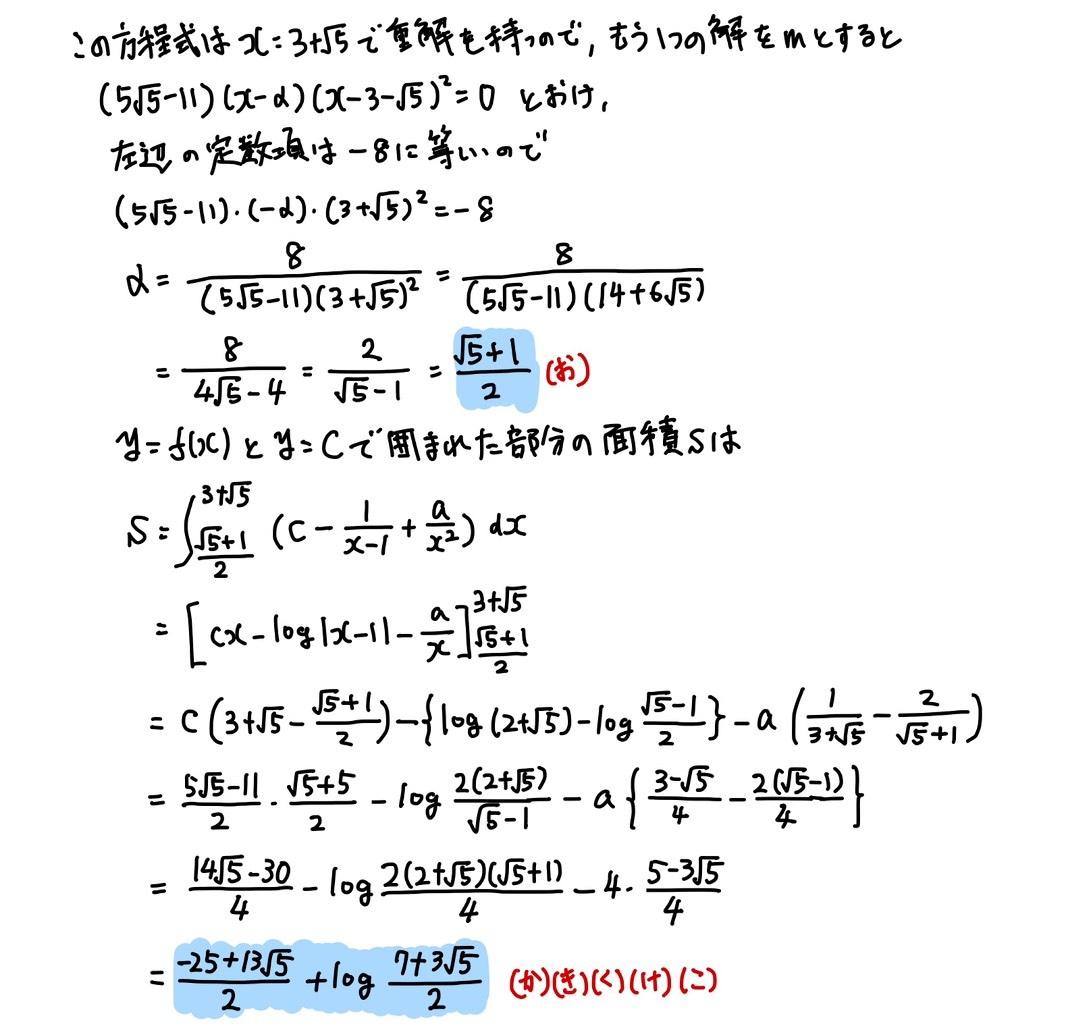 この方程式は x=3+√5 で重解を持つので, もう1つの解を m とすると
(5√5-11)(x-α)(x-3-√5)²=0 とおけ,
左辺の定数項は -8に等しいので
(5√5-11)・(-α)・(3+√5)²=-8
α = 8/((5√5-11)(3+√5)²) = 8/((5√5-11)(14+6√5))
= 8/(4√5-4) = 2/(√5-1) = (√5+1)/2 (お)
y=f(x) と y=C で囲まれた部分の面積Sは
S = ∫_{(√5+1)/2}^{3+√5} (C - 1/(x-1) + a/x²) dx
= [cx - log|x-1| - a/x]_{(√5+1)/2}^{3+√5}
= C(3+√5 - (√5+1)/2) - {log(2+√5) - log (√5-1)/2} - a(1/(3+√5) - 2/(√5+1))
= (5√5-11)/2 ・ (√5+5)/2 - log 2(2+√5)/(√5-1) - a{(3-√5)/4 - 2(√5-1)/4}
= (14√5-30)/4 - log 2(2+√5)(√5+1)/4 - 4・(5-3√5)/4
= (-25+13√5)/2 + log (7+3√5)/2 (か)(き)(く)(け)(こ)